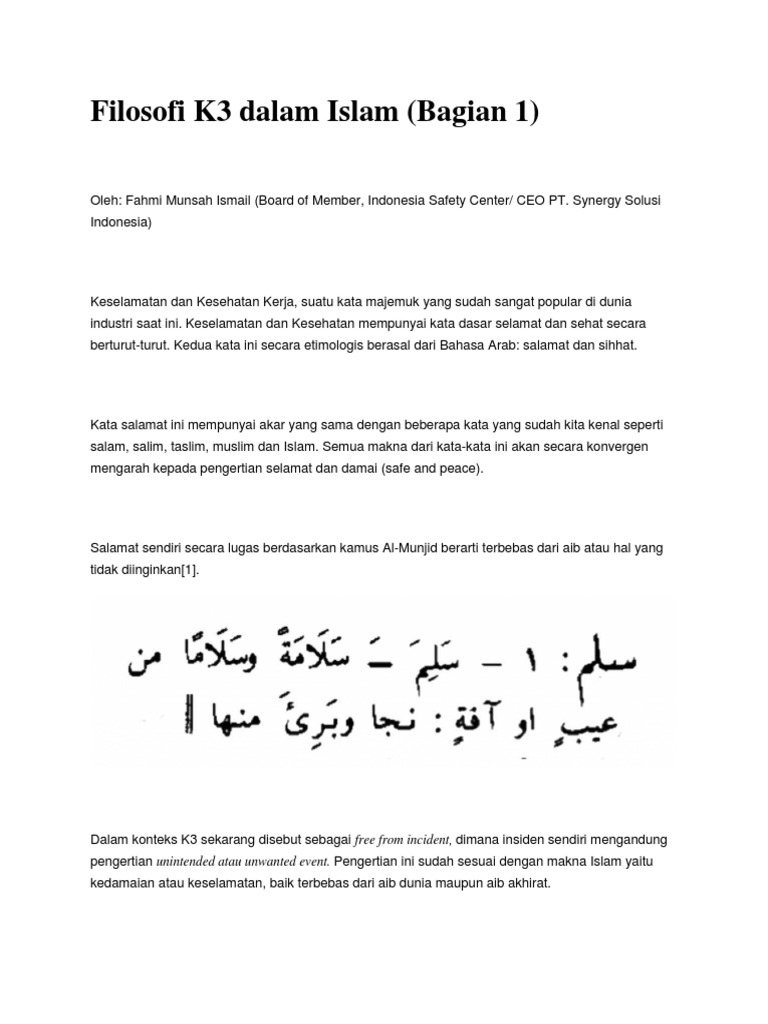 Filosofi K3 dalam Islam (Bagian 1)
Oleh: Fahmi Munsah Ismail (Board of Member, Indonesia Safety Center/ CEO PT. Synergy Solusi
Indonesia)
Keselamatan dan Kesehatan Kerja, suatu kata majemuk yang sudah sangat popular di dunia
industri saat ini. Keselamatan dan Kesehatan mempunyai kata dasar selamat dan sehat secara
berturut-turut. Kedua kata ini secara etimologis berasal dari Bahasa Arab: salamat dan sihhat.
Kata salamat ini mempunyai akar yang sama dengan beberapa kata yang sudah kita kenal seperti
salam, salim, taslim, muslim dan Islam. Semua makna dari kata-kata ini akan secara konvergen
mengarah kepada pengertian selamat dan damai (safe and peace).
Salamat sendiri secara lugas berdasarkan kamus Al-Munjid berarti terbebas dari aib atau hal yang
tidak diinginkan[1].
سلم : ١ – سَلِمَ – َ سَلَامَةً وسَلَامًا من
عيبٍ او آفةٍ : نجا وبَرِئَ منها ||
Dalam konteks K3 sekarang disebut sebagai free from incident, dimana insiden sendiri mengandung
pengertian unintended atau unwanted event. Pengertian ini sudah sesuai dengan makna Islam yaitu
kedamaian atau keselamatan, baik terbebas dari aib dunia maupun aib akhirat.